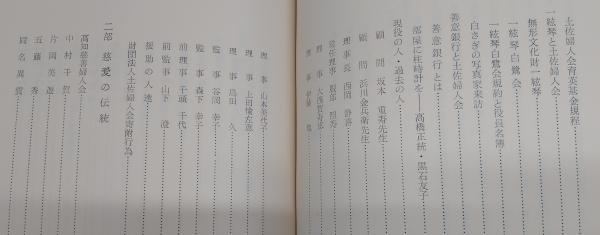 土佐婦人会育英基金規程
一絃琴と土佐婦人会
無形文化財一絃琴
一絃琴白鷺会
一絃琴白鷺会規約と役員名簿
白さぎの写真家来訪
善意銀行と土佐婦人会
善意銀行とは
部屋に柱時計を——高橋正統・黒石友子
現役の人・過去の人
顧問 坂本重寿先生
顧問 浜川金兵衛先生
理事長 西岡静喜
常任理事 服部照寿
理事
理事 伊藤
理事 山本美代子
理事 上田愉左恵
理事 島田久
監事 谷岡幸
監事 森下幸子
前理事 千頭千代
前監事 山下澄
援助の人達
財団法人土佐婦人会寄附行為
二部 慈愛の伝統
高知慈善婦人会
中村千賀
片岡美遊
五藤秀
岡名異賀